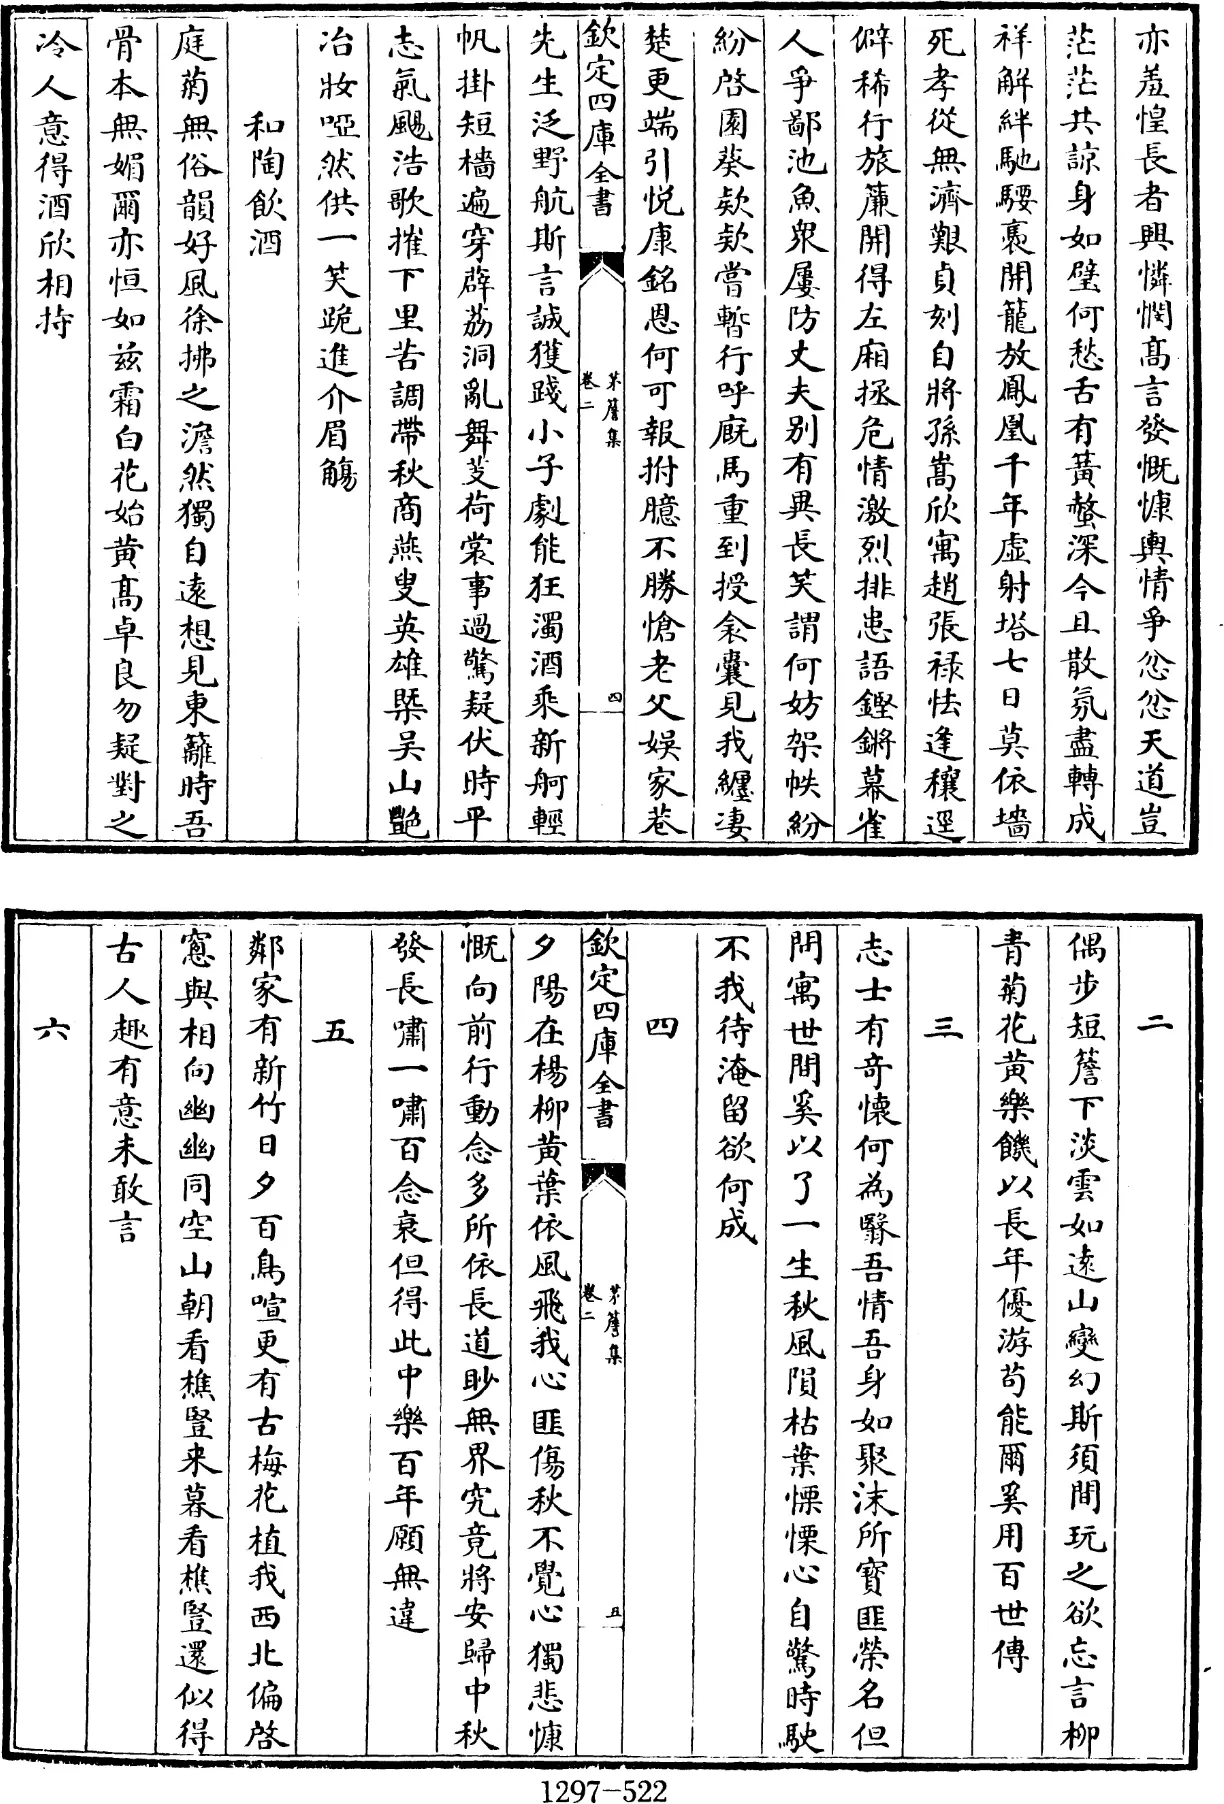 亦羞惶長者興憐憫髙言發慨慷輿情爭忿忿天道豈
茫茫共諒身如璧何愁舌有簧螫深今且散氛盡轉成
祥解絆馳騕褭開籠放鳳凰千年虛射塔七日莫依墻
死孝從無濟艱貞刻自將孫嵩欣寓趙張禄怯逢穰逕
僻稀行旅簾開得左廂拯危情激烈排患語鏗鏘幕雀
人爭鄙池魚眾屢防丈夫別有異長笑謂何妨架帙紛
紛啓園葵欵欵嘗暫行呼廐馬重到授衾囊見我纏凄
楚更端引悅康銘恩何可報拊臆不勝愴老父娛家巷
欽定四庫全書
茅簷集
卷二
四
先生泛野航斯言誠獲踐小子劇能狂濁酒乘新舸輕
帆掛短檣遍穿薜荔洞亂舞芰荷裳事過驚疑伏時平
志氣颺浩歌摧下里苦調帶秋商燕叟英雄槩吴山艷
冶妝啞然供一笑跪進介眉觴
和陶飲酒
庭菊無俗韻好風徐拂之澹然獨自遠想見東籬時吾
骨本無媚爾亦恒如兹霜白花始黄髙卓良勿疑對之
冷人意得酒欣相持
二
偶步短簷下淡雲如遠山變幻斯須間玩之欲忘言柳
青菊花黄樂饑以長年優游苟能爾奚用百世傳
三
志士有奇懷何為翳吾情吾身如聚沫所寳匪榮名但
問寓世間奚以了一生秋風隕枯葉慄慄心自驚時駛
不我待淹留欲何成
四
欽定四庫全書
茅簷集
卷二
五
夕陽在楊柳黄葉依風飛我心匪傷秋不覺心獨悲慷
慨向前行動念多所依長道眇無界究竟將安歸中秋
發長嘯一嘯百念衰但得此中樂百年願無違
五
鄰家有新竹日夕百鳥喧更有古梅花植我西北偏啓
窻與相向幽幽同空山朝看樵豎来暮看樵豎還似得
古人趣有意未敢言
六
1297-522